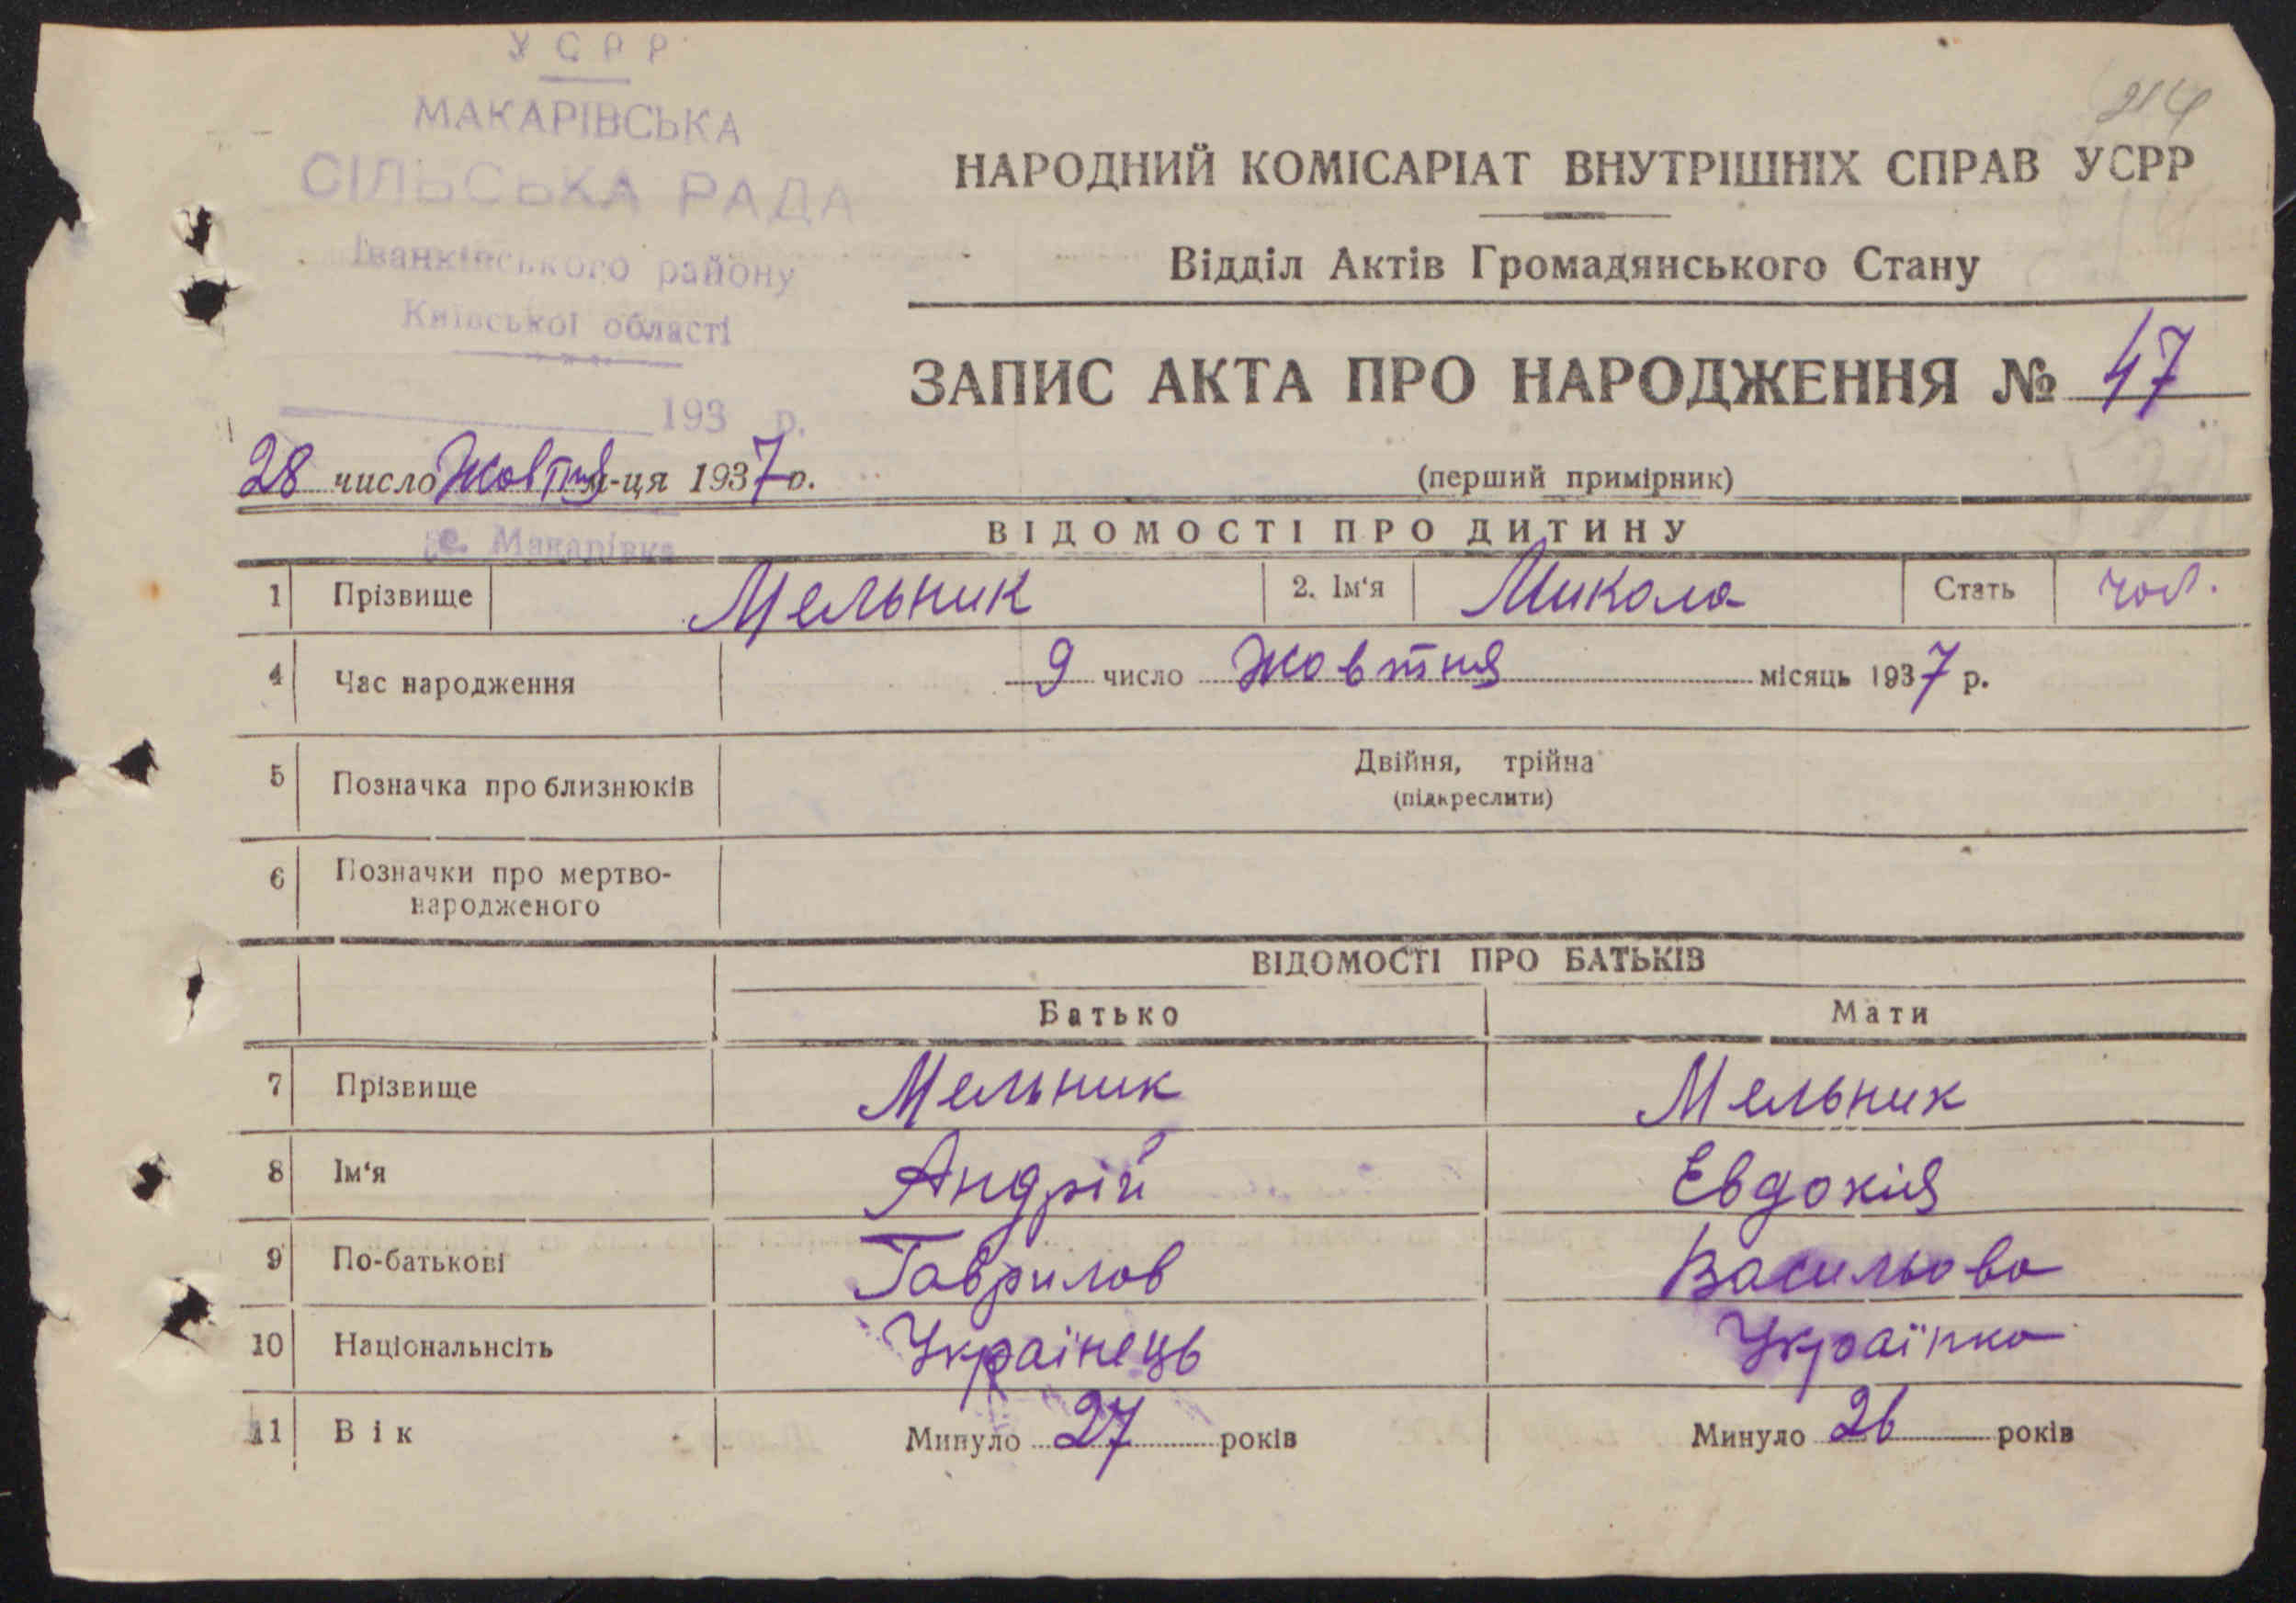 УСРР
МАКАРІВСЬКА
СІЛЬСЬКА РАДА
Іванківського району
Київської області
193 р.
с. Макарівка
214
НАРОДНИЙ КОМІСАРІАТ ВНУТРІШНІХ СПРАВ УСРР
Відділ Актів Громадянського Стану
ЗАПИС АКТА ПРО НАРОДЖЕННЯ № 47
28 число Жовтня м-ця 1937 р.
(перший примірник)
ВІДОМОСТІ ПРО ДИТИНУ
1 Прізвище Мельник 2. Ім'я Микола Стать чол.
4 Час народження 9 число Жовтня місяць 1937 р.
5 Позначка про близнюків Двійня, трійна
(підкреслити)
6 Позначки про мертво-
народженого
ВІДОМОСТІ ПРО БАТЬКІВ
Батько Мати
7 Прізвище Мельник Мельник
8 Ім'я Андрій Евдокія
9 По-батькові Гаврилов Васильова
10 Національнсіть Українець Українка
11 Вік Минуло 27 років Минуло 26 років